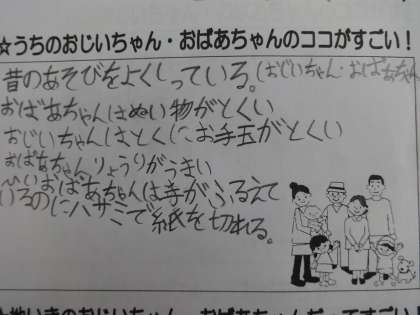 ☆うちのおじいちゃん・おばあちゃんのココがすごい！
昔のあそびをよくしっている。(おじいちゃん・おばあちゃん
おばあちゃんはぬい物がとくい
おじいちゃんはとくにお手玉がとくい
おばあちゃんりょうりがうまい
ひいおばあちゃんは手がふるえて
いるのにハサミで紙を切れる。